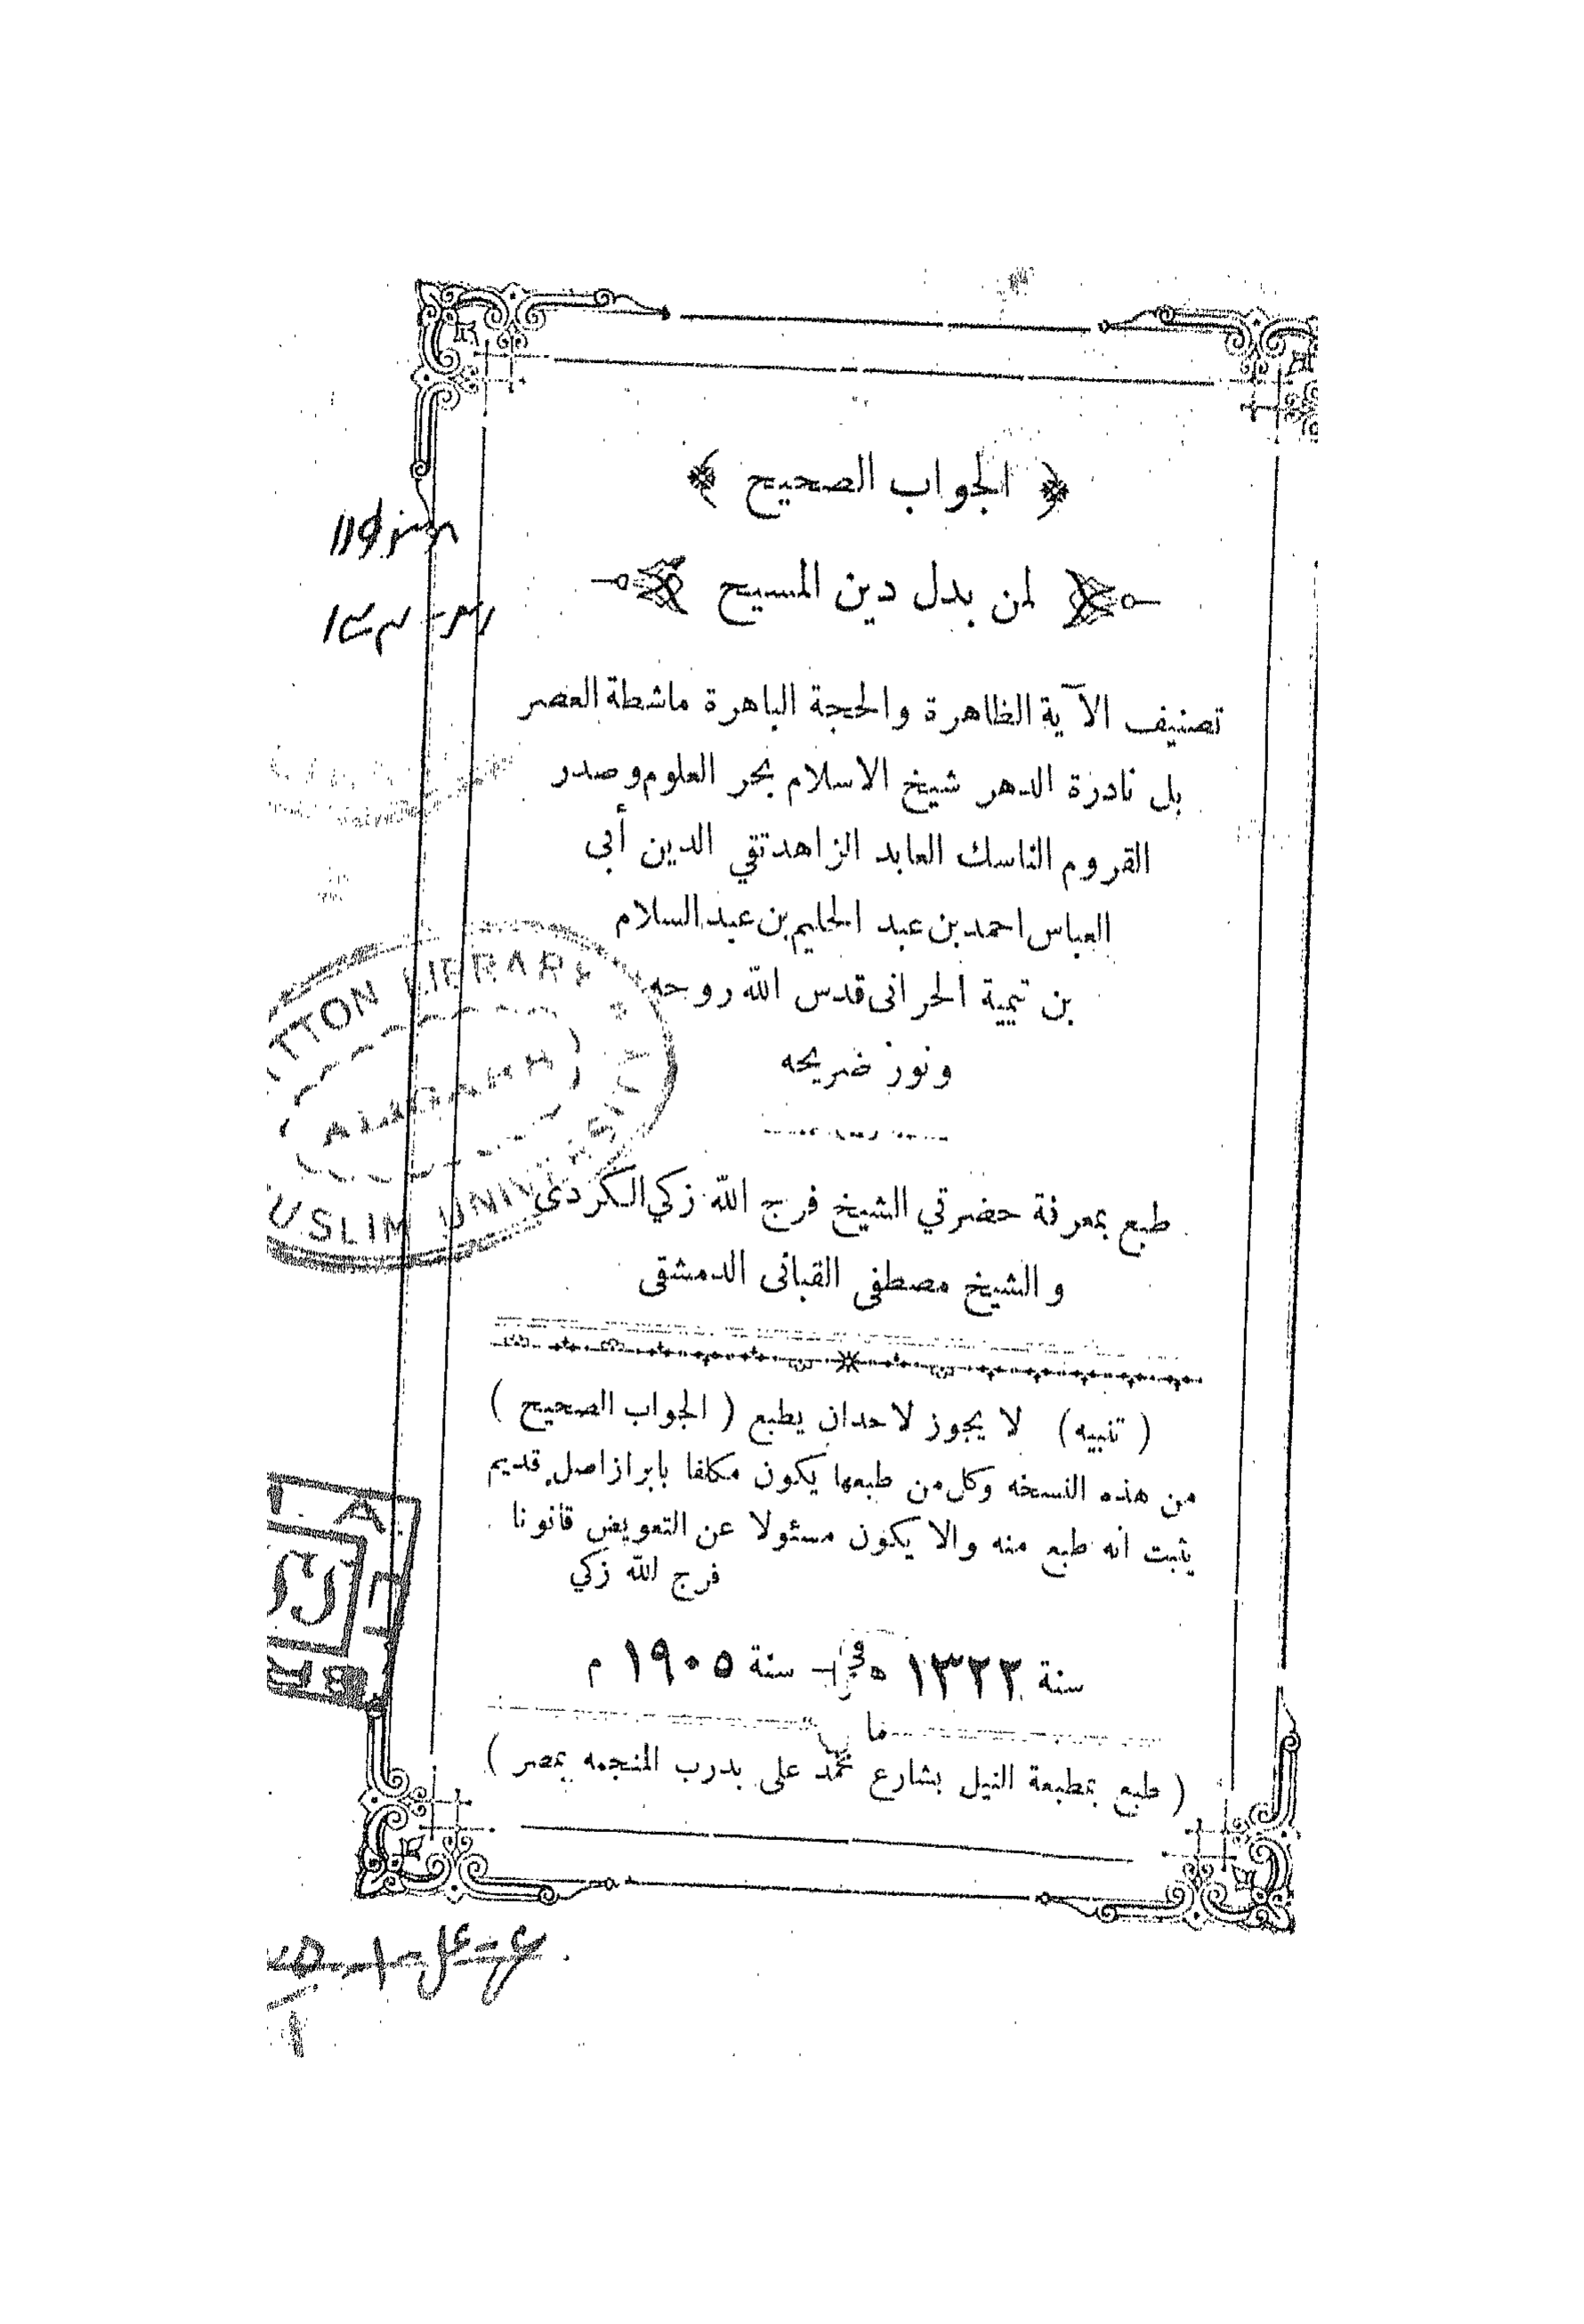 ﴿ الجواب الصحيح ﴾
لمن بدل دين المسيح
تصنيف الآية الظاهرة والحجة الباهرة ماشطة العصر
بل نادرة الدهر شيخ الاسلام بحر العلوم وصدر
القروم الناسك العابد الزاهد تقي الدين أبي
العباس احمد بن عبد الحليم بن عبد السلام
بن تيمية الحرانى قدس الله روحه
ونور ضريحه
طبع بمعرفة حضرتي الشيخ فرج الله زكي الكردى
والشيخ مصطفى القبانى الدمشقى
( تنبيه ) لا يجوز لاحد ان يطبع ( الجواب الصحيح )
من هذه النسخه وكل من طبعها يكون مكلفا بابراز اصل قديم
يثبت انه طبع منه والا يكون مسئولا عن التعويض قانونا
فرج الله زكي
سنة ١٣٢٢ ه — سنة ١٩٠٥ م
( طبع بمطبعة النيل بشارع محمد على بدرب المنجمه بمصر )
TTON LIBRARY
ALIGARH
USLIM UNIVERSITY